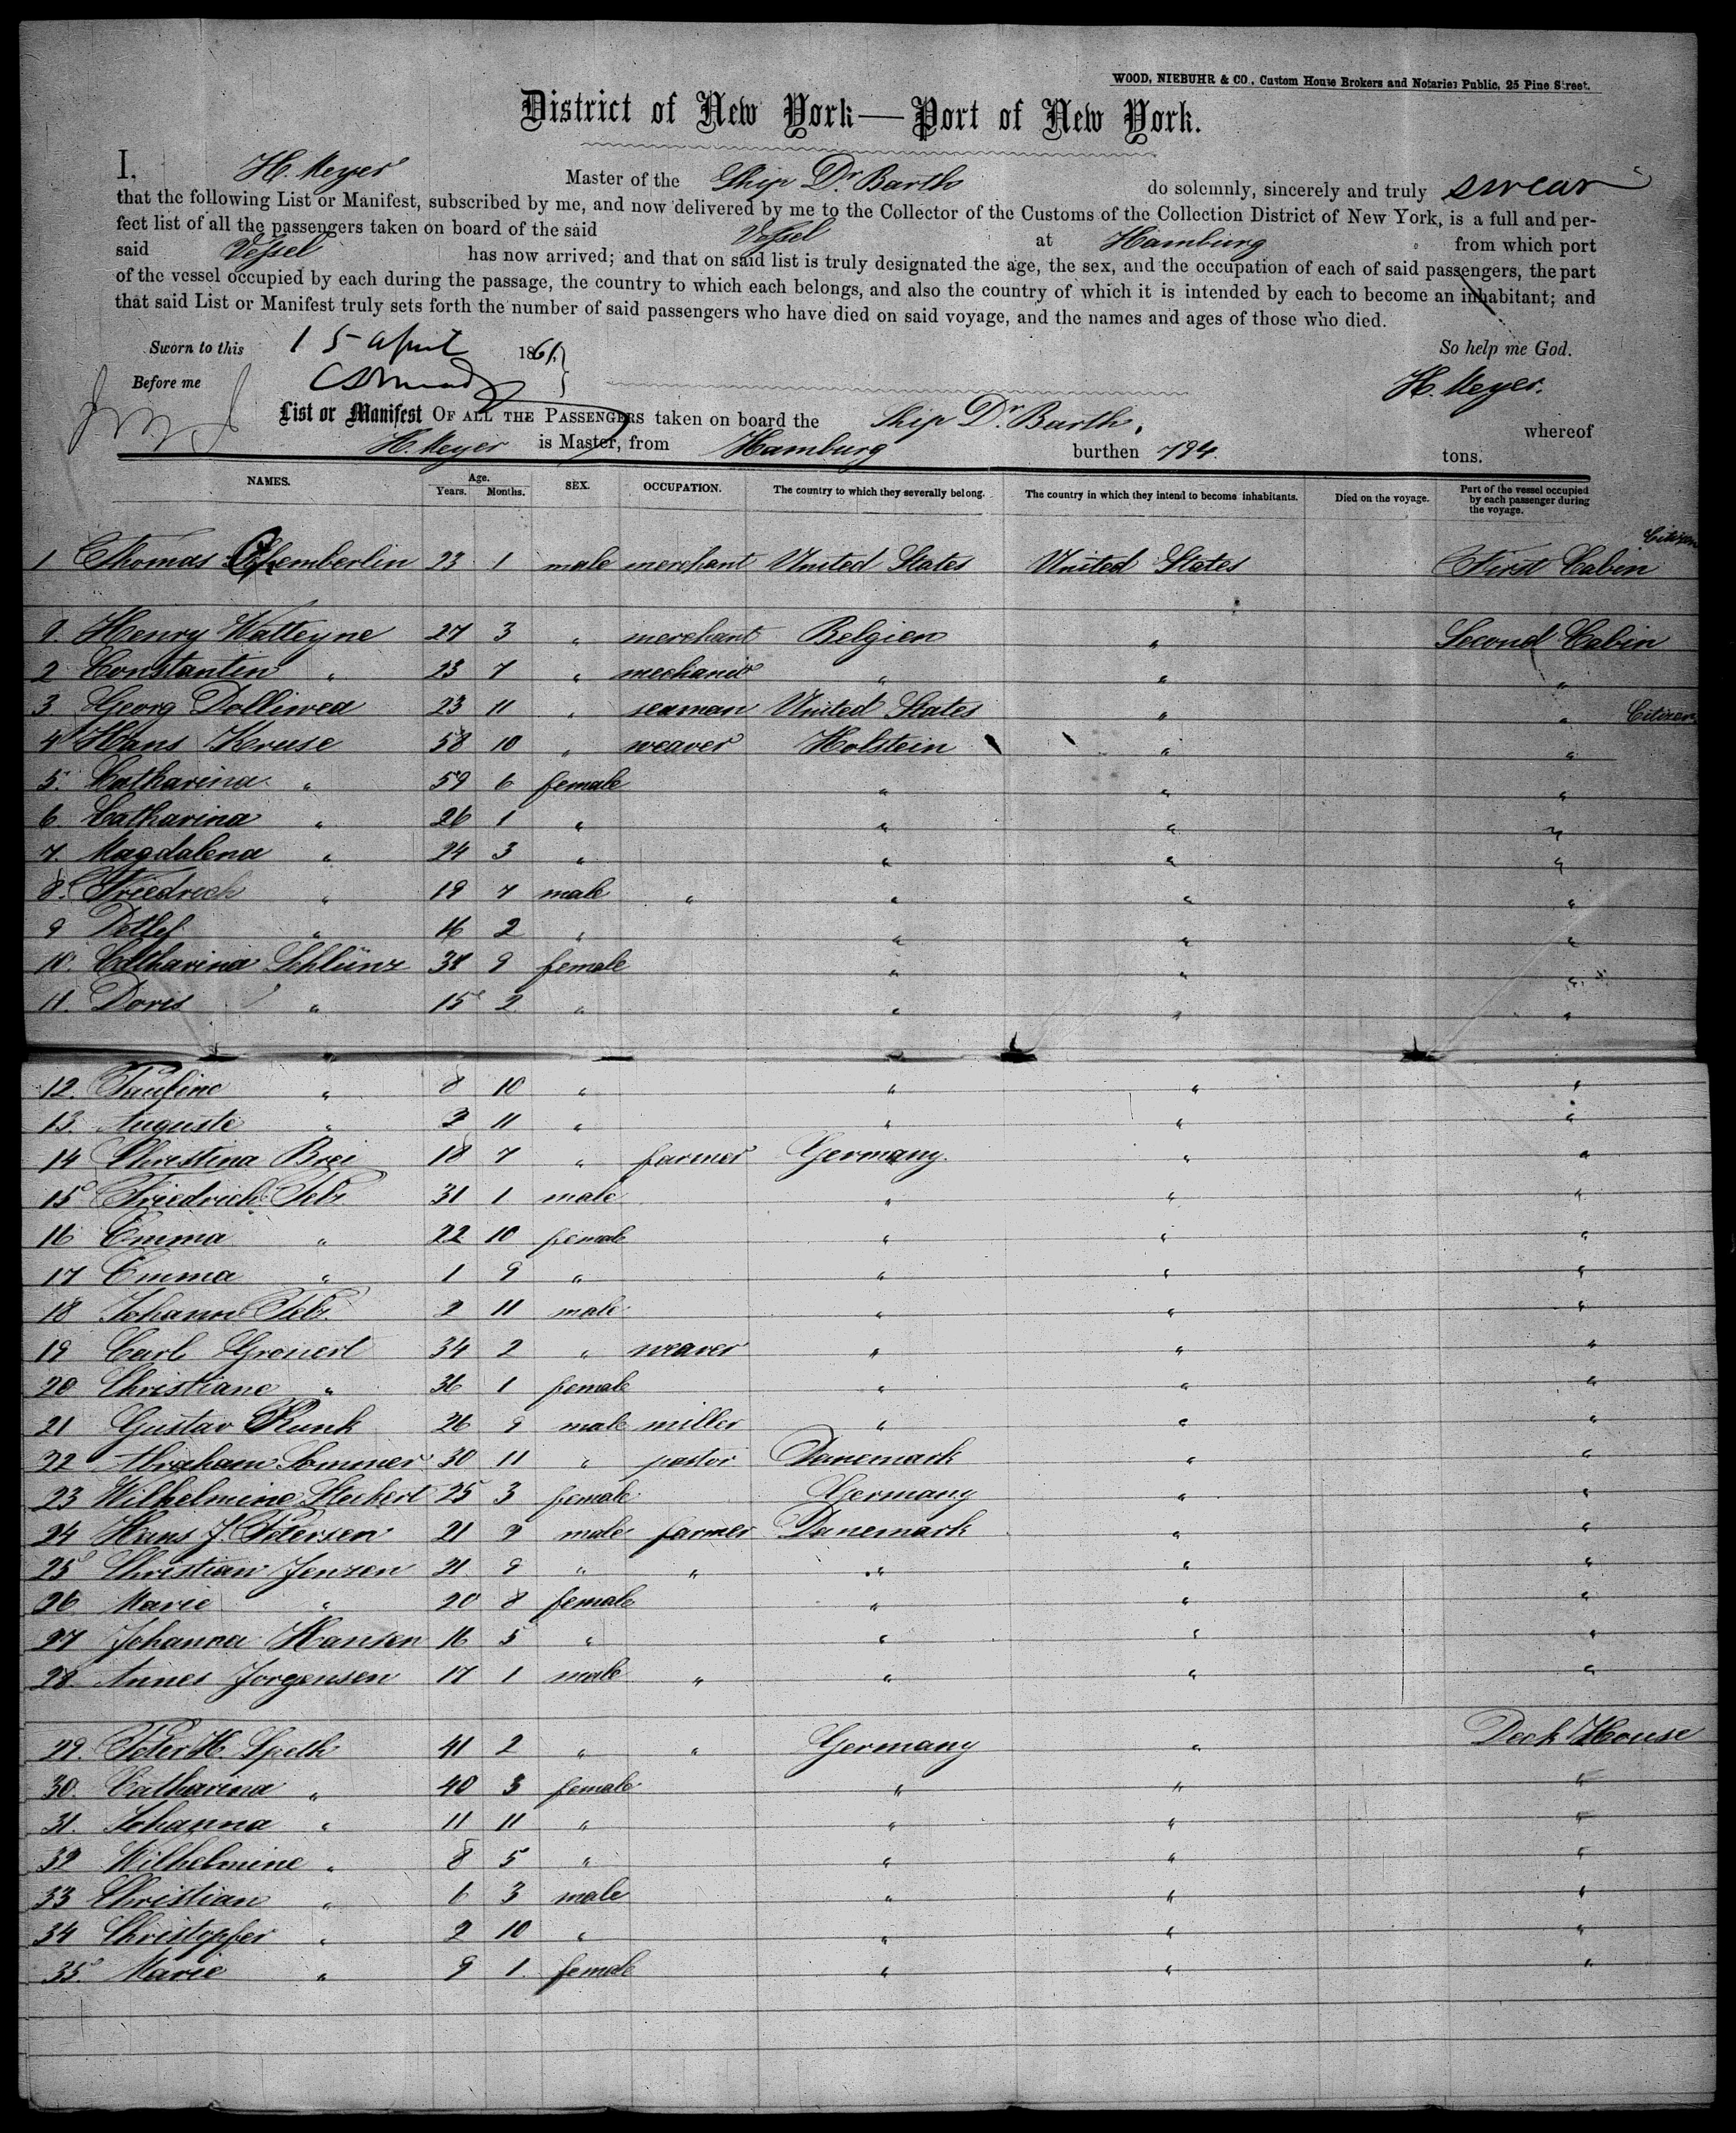 WOOD, NIEBUHR & CO., Custom House Brokers and Notaries Public, 25 Pine Street.
District of New York—Port of New York.
I, H. Meyer Master of the Ship Dr. Barth do solemnly, sincerely and truly swear
that the following List or Manifest, subscribed by me, and now delivered by me to the Collector of the Customs of the Collection District of New York, is a full and per-
fect list of all the passengers taken on board of the said Vessel at Hamburg from which port
said Vessel has now arrived; and that on said list is truly designated the age, the sex, and the occupation of each of said passengers, the part
of the vessel occupied by each during the passage, the country to which each belongs, and also the country of which it is intended by each to become an inhabitant; and
that said List or Manifest truly sets forth the number of said passengers who have died on said voyage, and the names and ages of those who died.
Sworn to this 15 April 1861. So help me God.
Before me H. Meyer.
List or Manifest OF ALL THE PASSENGERS taken on board the Ship Dr. Barth, whereof
H. Meyer is Master, from Hamburg burthen 794. tons.
NAMES. Age. Years. Months. SEX. OCCUPATION. The country to which they severally belong. The country in which they intend to become inhabitants. Died on the voyage. Part of the vessel occupied by each passenger during the voyage.
Citizen
1 Thomas Chemberlin 23 1 male merchant United States United States First Cabin
1. Henry Watteyne 27 3 " merchant Belgien " Second Cabin
2 Constantin " 23 7 " mechanic " " "
3. Georg Dolliwea 23 11 " seaman United States " " Citizen
4 Hans Kruse 58 10 " weaver Holstein " "
5. Catharina " 59 6 female " " "
6. Catharina " 26 1 " " " "
7. Magdalena " 24 3 " " " "
8. Friedrich " 19 7 male " " " "
9 Detlef " 16 2 " " " "
10. Catharina Schlünz 38 9 female " " "
11. Doris " 15 2 " " " "
12. Pauline " 8 10 " " " "
13. Auguste " 2 11 " " " "
14 Christina Brei 18 7 " farmer Germany. " "
15 Friedrich Feb. 31 1 male " " "
16 Emma " 22 10 female " " "
17 Emma " 1 9 " " " "
18 Johann Feb. 2 11 male " " "
19 Carl Grouert 34 2 " weaver " " "
20 Christiane " 36 1 female " " "
21 Gustav Runk 26 9 male miller " " "
22 Abraham Sommer 30 11 " pastor Danemark " "
23 Wilhelmine Steckert 25 3 female Germany " "
24 Hans J. Petersen 21 9 male farmer Danemark " "
25 Christian Jenzen 21 9 " " " " "
26 Marie " 20 8 female " " "
27 Johanna Hansen 16 5 " " " "
28. Annes Jorgensen 17 1 male " " " "
29. Peter H. Speth 41 2 " " Germany " Deck House
30. Catharina " 40 3 female " " "
31. Johanna " 11 11 " " " "
32 Wilhelmine " 8 5 " " " "
33 Christian " 6 3 male " " "
34 Christopfer " 2 10 " " " "
35. Marie " 9 1. female " " "